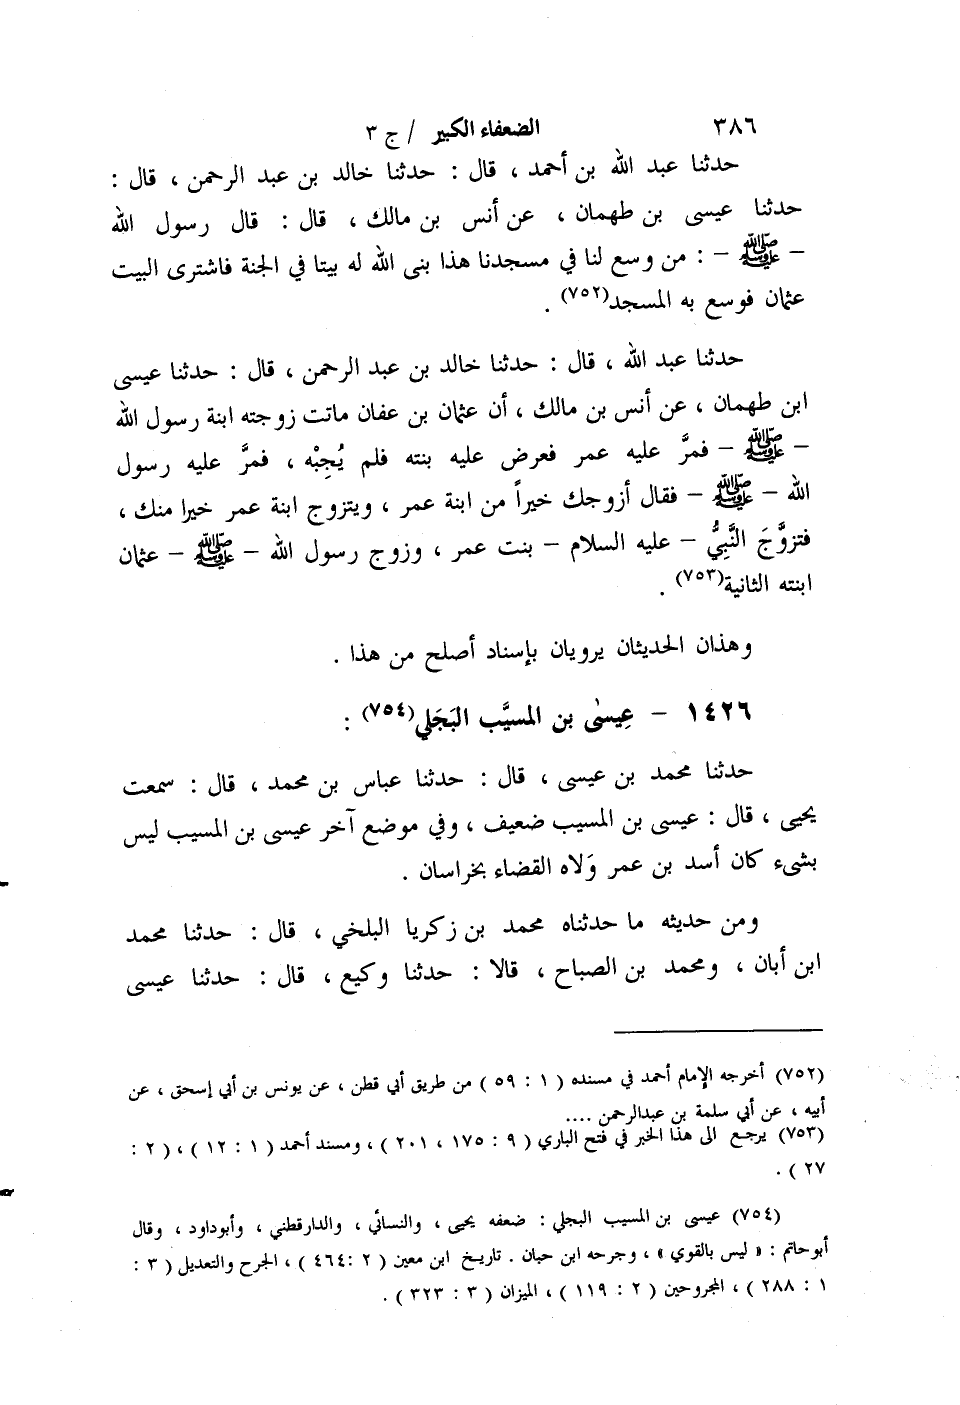 ٣٨٦ الضعفاء الكبير / ج ٣
حدثنا عبد الله بن أحمد ، قال : حدثنا خالد بن عبد الرحمن ، قال :
حدثنا عيسى بن طهمان ، عن أنس بن مالك ، قال : قال رسول الله
– ﷺ – : من وسع لنا في مسجدنا هذا بنى الله له بيتا في الجنة فاشترى البيت
عثمان فوسع به المسجد(٧٥٢) .
حدثنا عبد الله ، قال : حدثنا خالد بن عبد الرحمن ، قال : حدثنا عيسى
ابن طهمان ، عن أنس بن مالك ، أن عثمان بن عفان ماتت زوجته ابنة رسول الله
– ﷺ – فمرَّ عليه عمر فعرض عليه بنته فلم يُجِبْه ، فمرَّ عليه رسول
الله – ﷺ – فقال أزوجك خيراً من ابنة عمر ، ويتزوج ابنة عمر خيرا منك ،
فتزوَّجَ النَّبِيُّ – عليه السلام – بنت عمر ، وزوج رسول الله – ﷺ – عثمان
ابنته الثانية(٧٥٣) .
وهذان الحديثان يرويان بإسناد أصلح من هذا .
١٤٢٦ – عِيسٰى بن المسيَّب البَجَلي(٧٥٤) :
حدثنا محمد بن عيسى ، قال : حدثنا عباس بن محمد ، قال : سمعت
يحيى ، قال : عيسى بن المسيب ضعيف ، وفي موضع آخر عيسى بن المسيب ليس
بشىء كان أسد بن عمر وَلاه القضاء بخراسان .
ومن حديثه ما حدثناه محمد بن زكريا البلخي ، قال : حدثنا محمد
ابن أبان ، ومحمد بن الصباح ، قالا : حدثنا وكيع ، قال : حدثنا عيسى
(٧٥٢) أخرجه الإمام أحمد في مسنده ( ١ : ٥٩ ) من طريق أبي قطن ، عن يونس بن أبي إسحق ، عن
أبيه ، عن أبي سلمة بن عبدالرحمن ....
(٧٥٣) يرجع الى هذا الخبر في فتح الباري ( ٩ : ١٧٥ ، ٢٠١ ) ، ومسند أحمد ( ١ : ١٢ ) ، ( ٢ :
٢٧ ) .
(٧٥٤) عيسى بن المسيب البجلي : ضعفه يحيى ، والنسائي ، والدارقطني ، وأبوداود ، وقال
أبوحاتم : « ليس بالقوي » ، وجرحه ابن حبان . تاريخ ابن معين ( ٢ :٤٦٤ ) ، الجرح والتعديل ( ٣ :
١ : ٢٨٨ ) ، المجروحين ( ٢ : ١١٩ ) ، الميزان ( ٣ : ٣٢٣ ) .